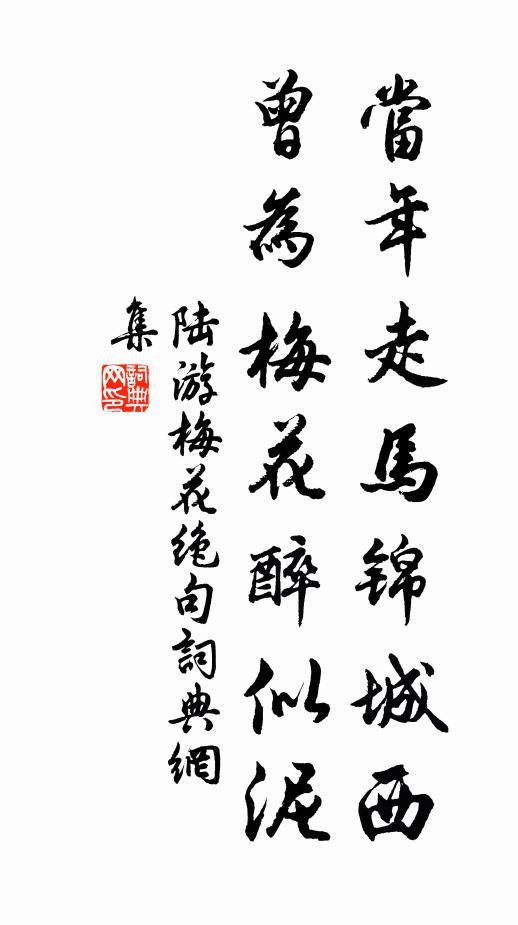 當年走馬錦城西
曾為梅花醉似泥
陸游梅花绝句詞典網
集
詞典网印